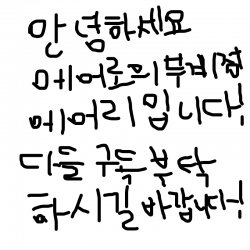 안녕하세요
에어로의부계정
에어리입니다!
다들 구독 부탁
하시길 바랍니다~!